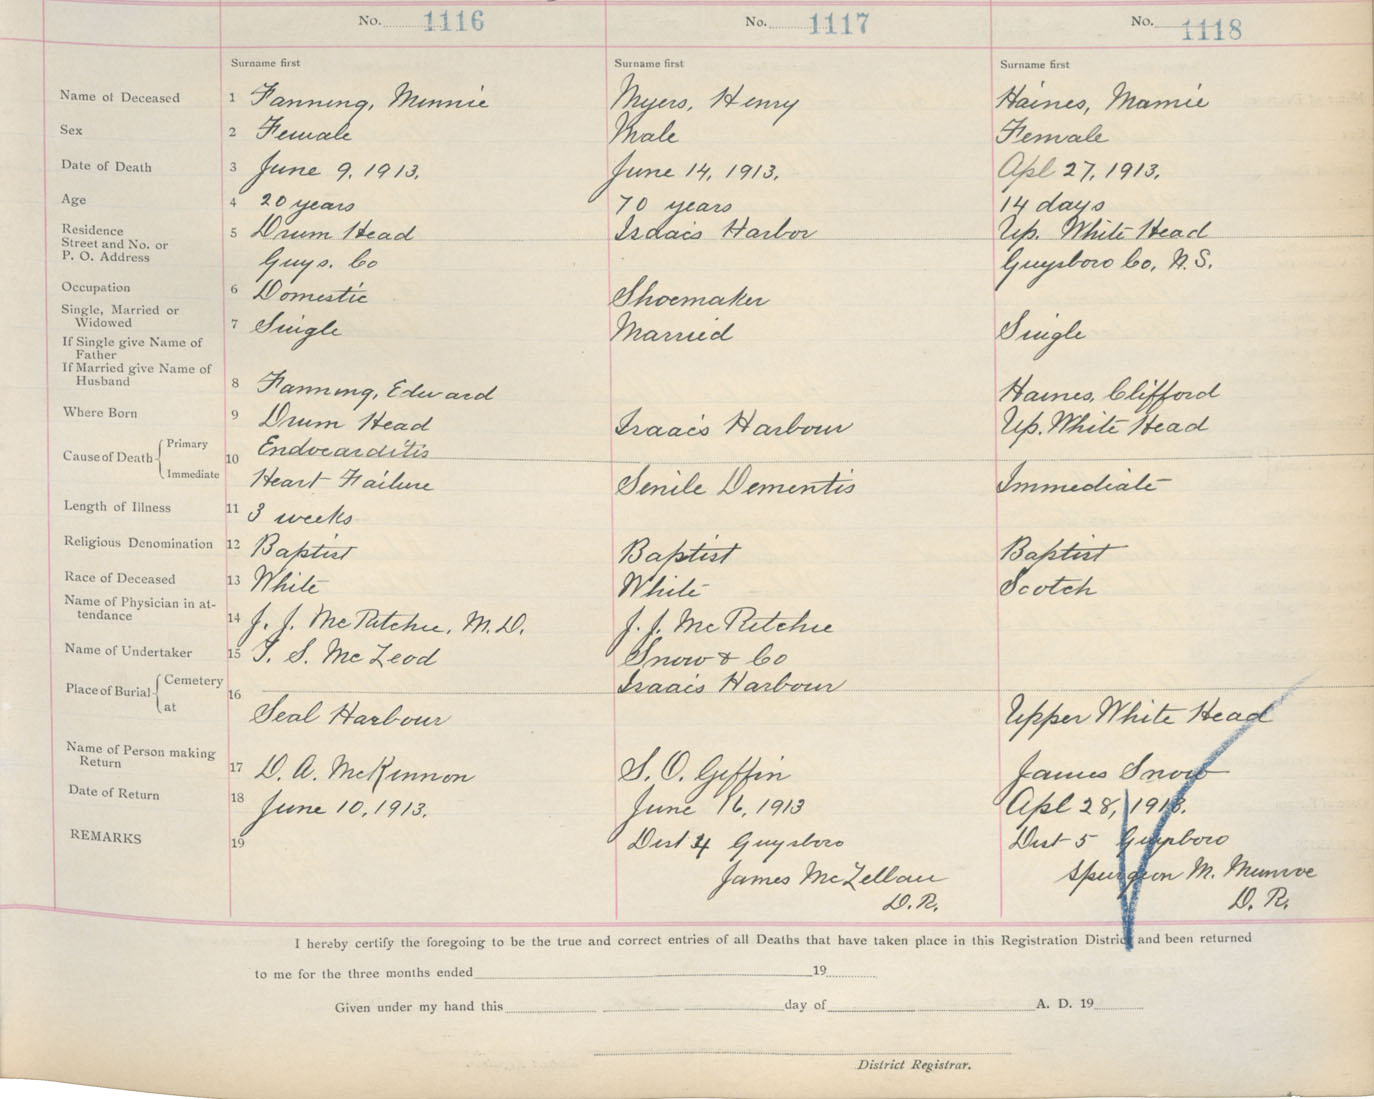 No. 1116 No. 1117 No. 1118
Surname first Surname first Surname first
Name of Deceased 1 Fanning, Minnie Myers, Henry Haines, Mamie
Sex 2 Female Male Female
Date of Death 3 June 9, 1913. June 14, 1913. Apl 27, 1913.
Age 4 20 years 70 years 14 days
Residence 5 Drum Head Isaacs Harbor Up. White Head
Street and No. or
P. O. Address Guys. Co Guysboro Co, N.S.
Occupation 6 Domestic Shoemaker
Single, Married or
Widowed 7 Single Married Single
If Single give Name of
Father
If Married give Name of
Husband 8 Fanning, Edward Haines, Clifford
Where Born 9 Drum Head Isaacs Harbour Up. White Head
Cause of Death Primary 10 Endocarditis
Immediate Heart Failure Senile Dementis Immediate
Length of Illness 11 3 weeks
Religious Denomination 12 Baptist Baptist Baptist
Race of Deceased 13 White White Scotch
Name of Physician in at-
tendance 14 J. J. McRitchie, M.D. J. J. McRitchie
Name of Undertaker 15 T. S. McLeod Snow & Co
Place of Burial Cemetery 16 Isaacs Harbour
at Seal Harbour Upper White Head
Name of Person making
Return 17 D. A. McKinnon S. O. Giffin James Snow
Date of Return 18 June 10, 1913. June 16, 1913 Apl 28, 1913.
REMARKS 19 Dist 4 Guysboro Dist 5 Guysboro
James McLellan Spurgeon M. Munroe
D.R. D. R.
I hereby certify the foregoing to be the true and correct entries of all Deaths that have taken place in this Registration District and been returned
to me for the three months ended 19
Given under my hand this day of A. D. 19
District Registrar.